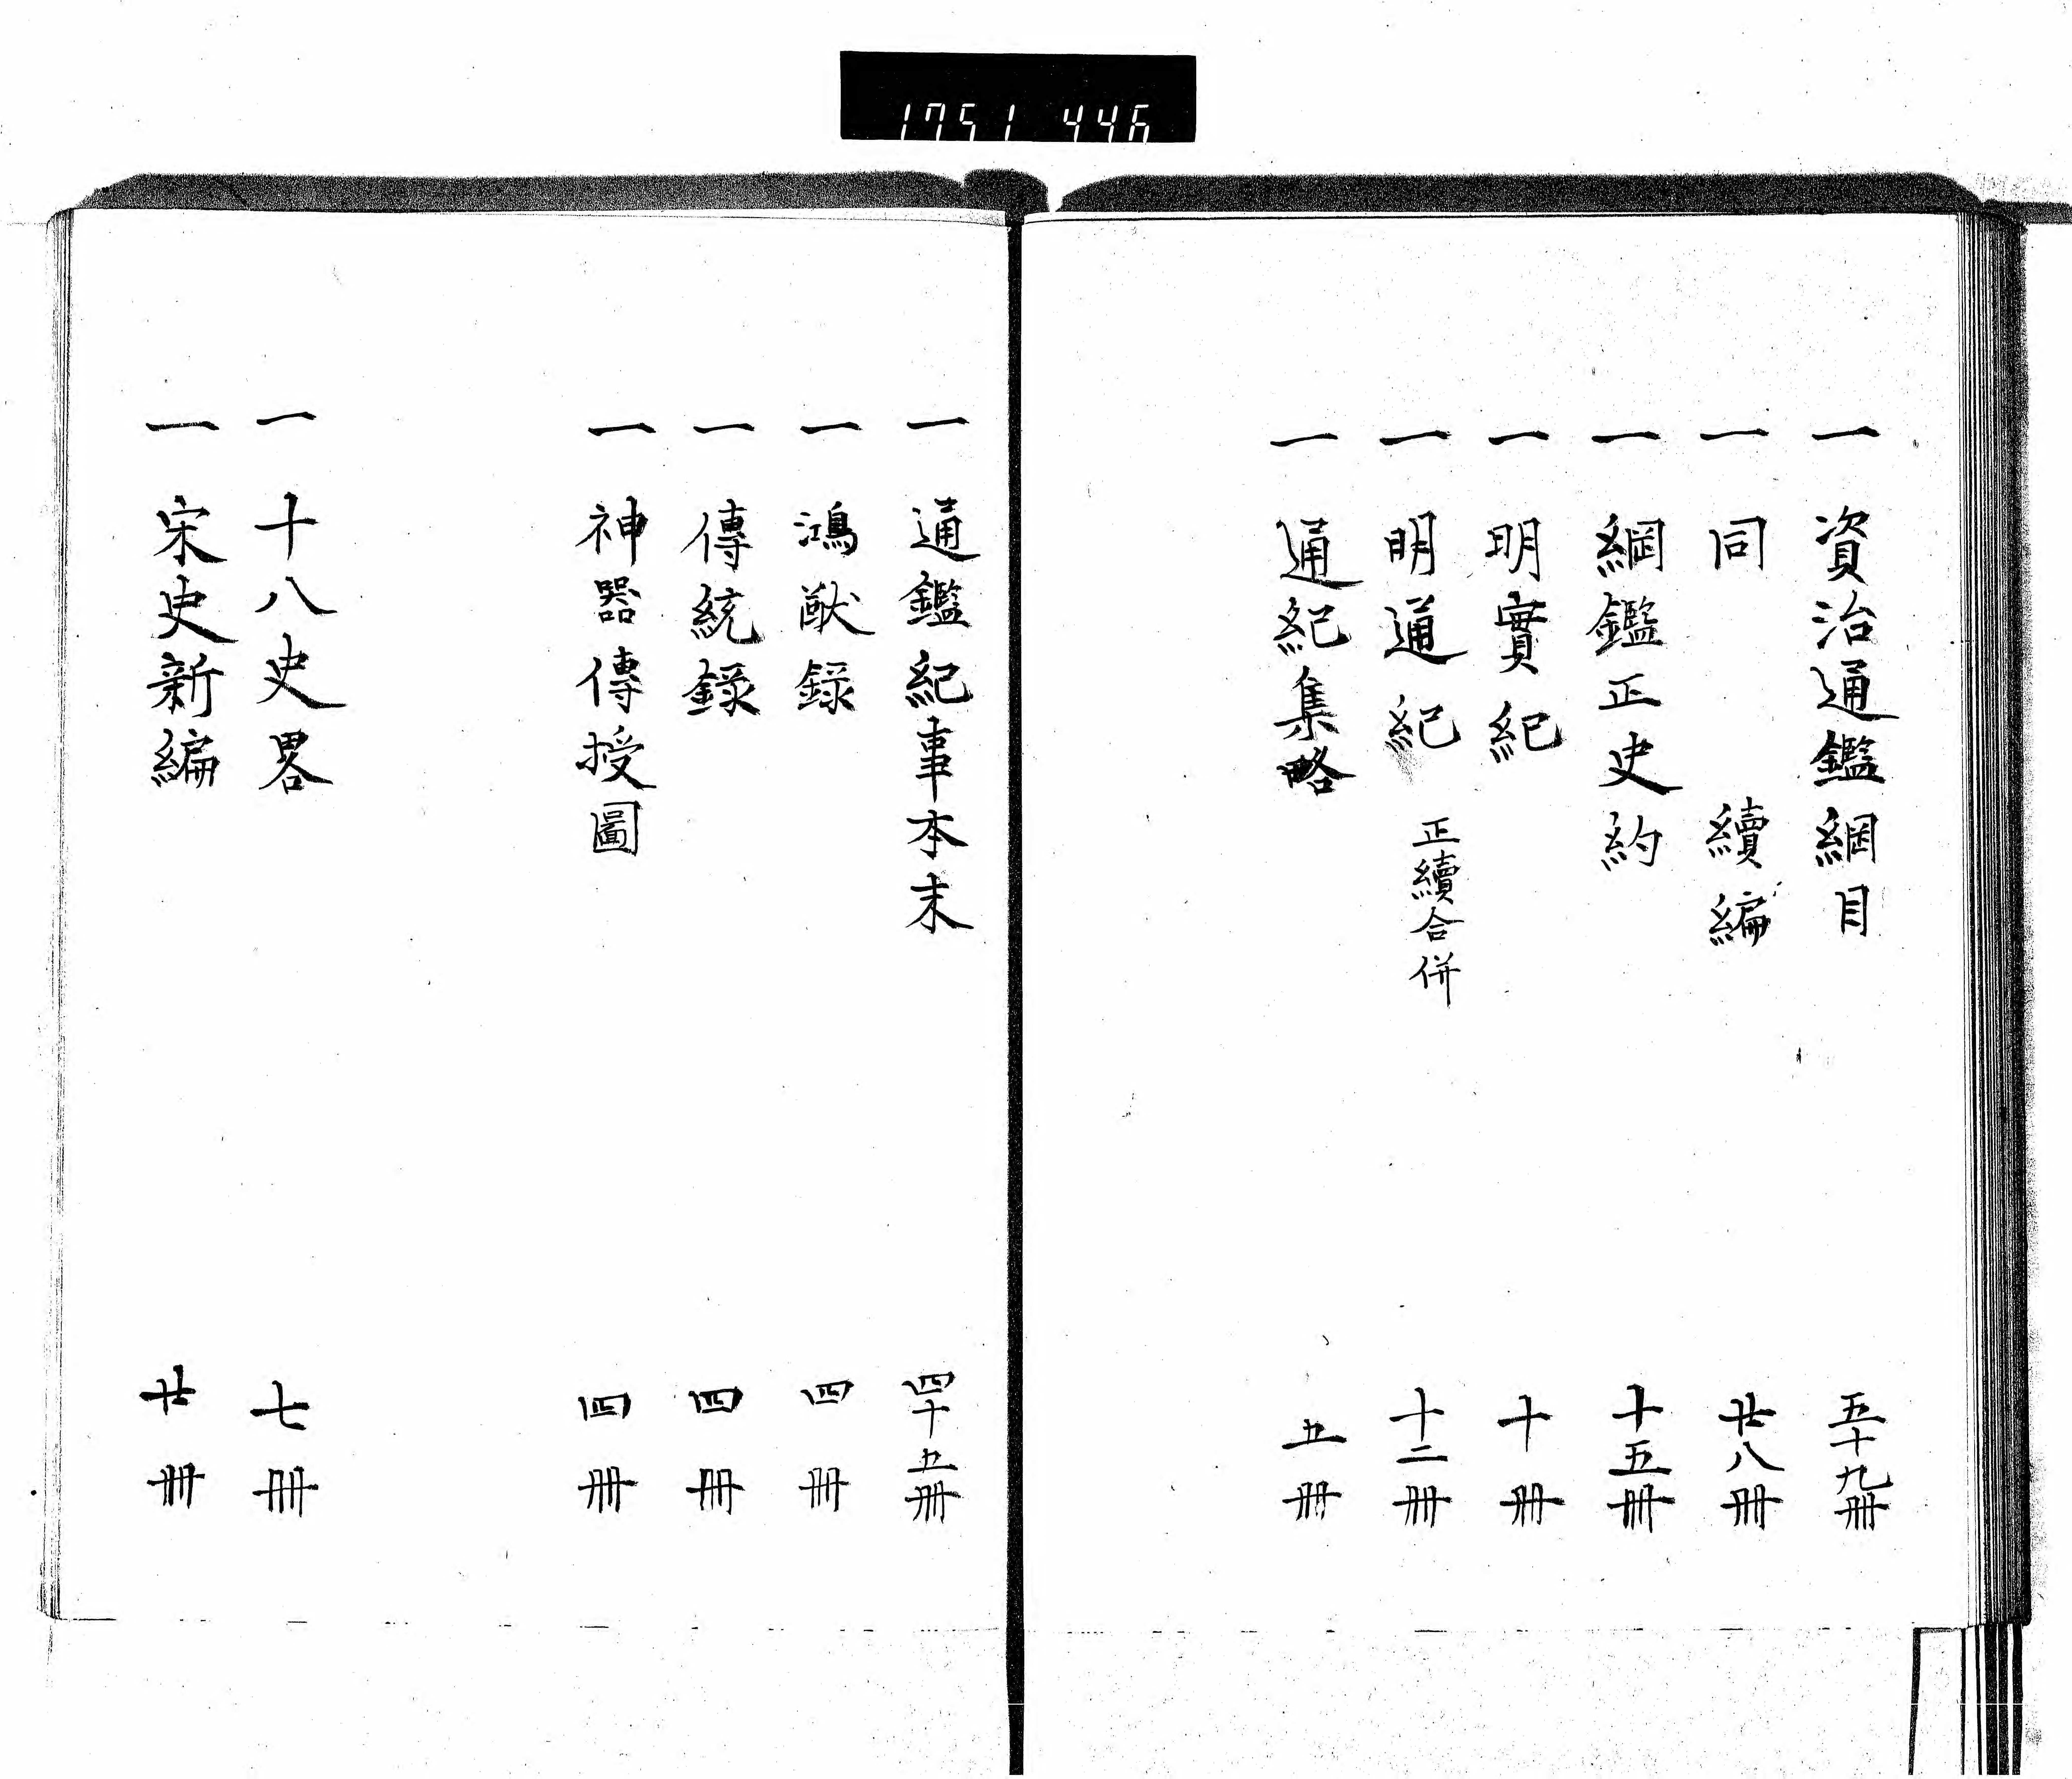 1751 446
一 資治通鑑綱目 五十九冊
一 同 續編 廿八冊
一 綱鑑正史約 十五冊
一 明實紀 十冊
一 明通紀 正續合併 十二冊
一 通紀集略 五冊
一 通鑑紀事本末 四十五冊
一 鴻猷録 四冊
一 傳統録 四冊
一 神器傳授圖 四冊
一 十八史畧 七冊
一 宋史新編 廿冊